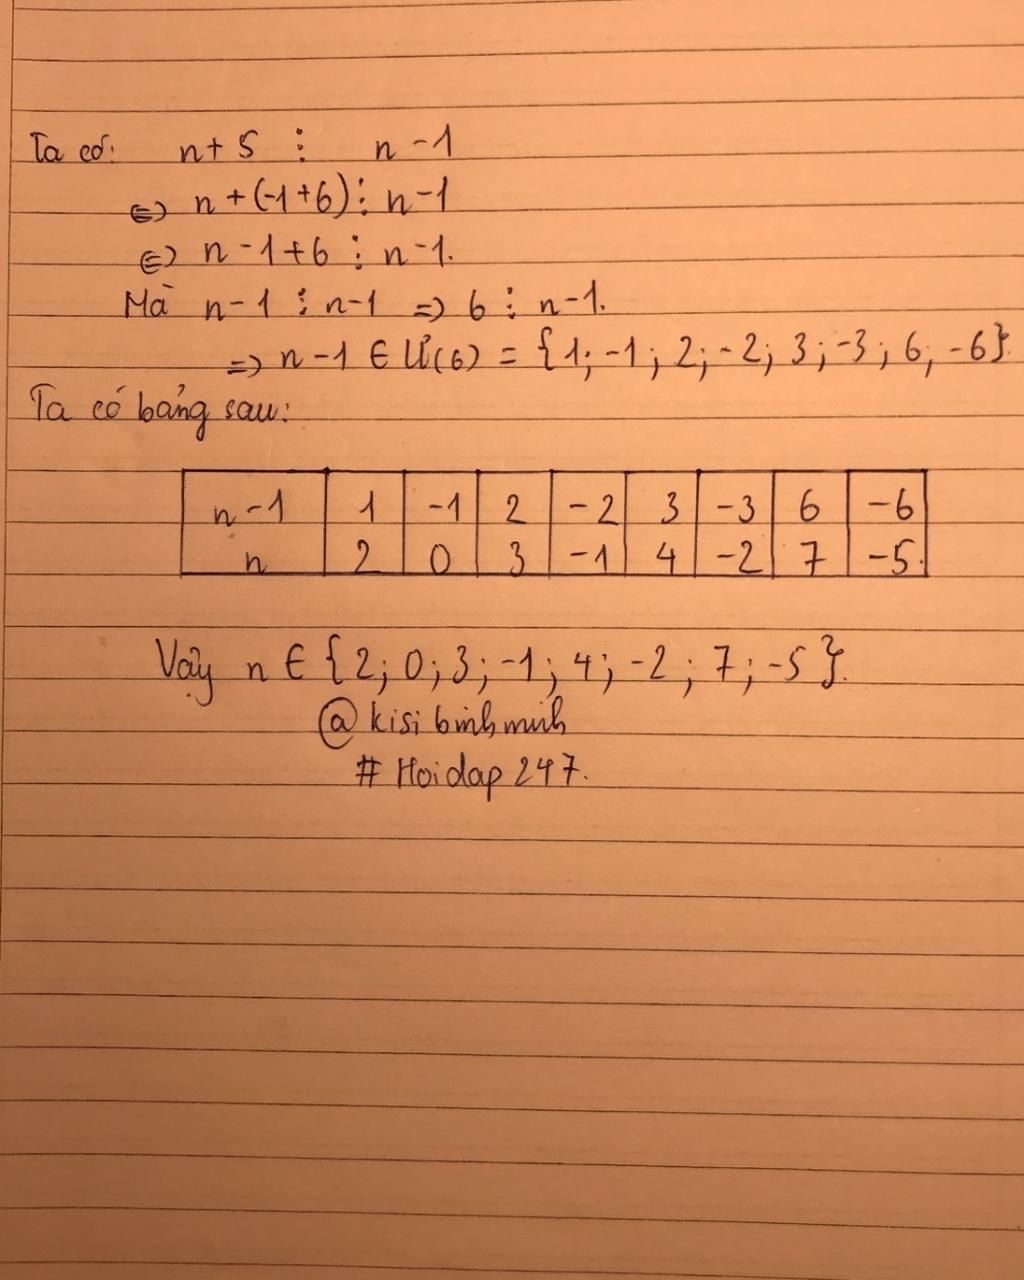 Ta có: n+5 ⋮ n-1
⇔ n+(-1+6) ⋮ n-1
⇔ n-1+6 ⋮ n-1.
Mà n-1 ⋮ n-1 => 6 ⋮ n-1.
=> n-1 ∈ Ư(6) = {1; -1; 2; -2; 3; -3; 6, -6}.
Ta có bảng sau:
n-1 1 -1 2 -2 3 -3 6 -6
n 2 0 3 -1 4 -2 7 -5.
Vậy n ∈ {2; 0; 3; -1; 4; -2; 7; -5}.
@ kisi binh minh
# Hoidap 247.